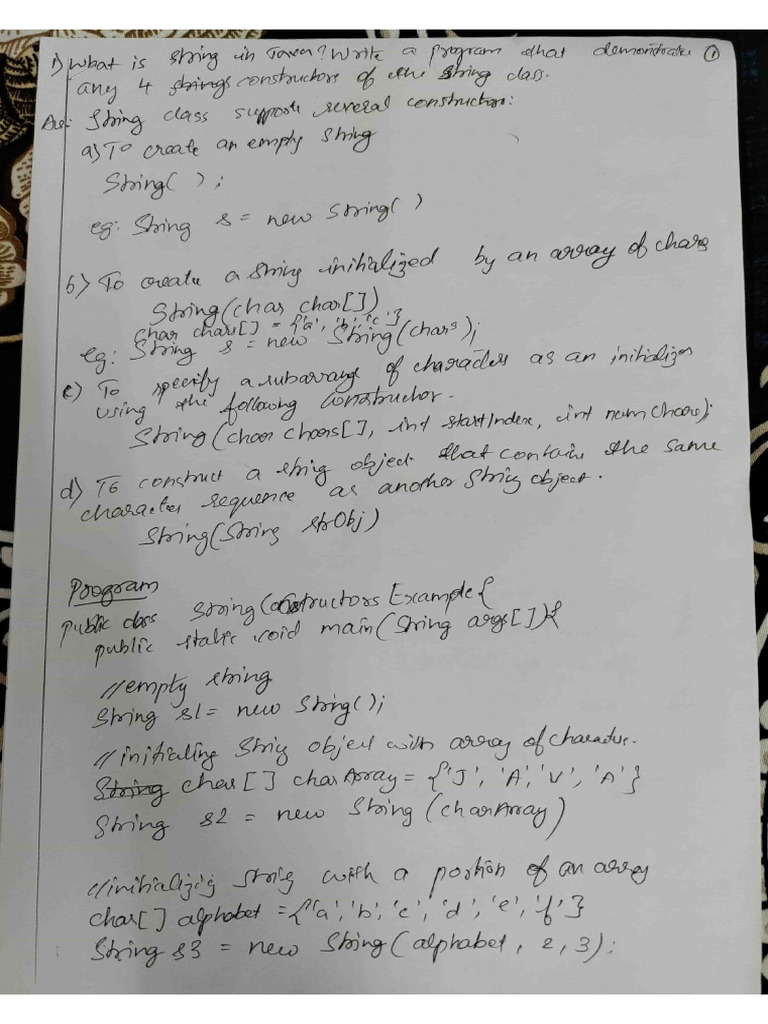 1) What is string in Java? Write a program that demonstrates ①
any 4 strings constructors of the string class.
Ans: String class supports several constructors:
a) To create an empty string
String( );
eg: String s = new String( )
b) To create a string initialized by an array of chars
String(char char[])
char chars[] = {'a', 'b', 'c'}
eg: String s = new String(chars);
c) To specify a subarrange of characters as an initializer
using the following constructor.
String(char chars[], int startIndex, int numChars);
d) To construct a string object that contain the same
character sequence as another String object.
String(String strObj)
Program
public class StringConstructorsExample{
public static void main(String args[]){
//empty string
String s1 = new String();
//initialing String object with array of character.
String char[] charArray = {'J', 'A', 'V', 'A'}
String s2 = new String (charArray)
//initializig string with a portion of an array
char[] alphabet = {'a', 'b', 'c', 'd', 'e', 'f'}
String s3 = new String(alphabet, 2, 3);